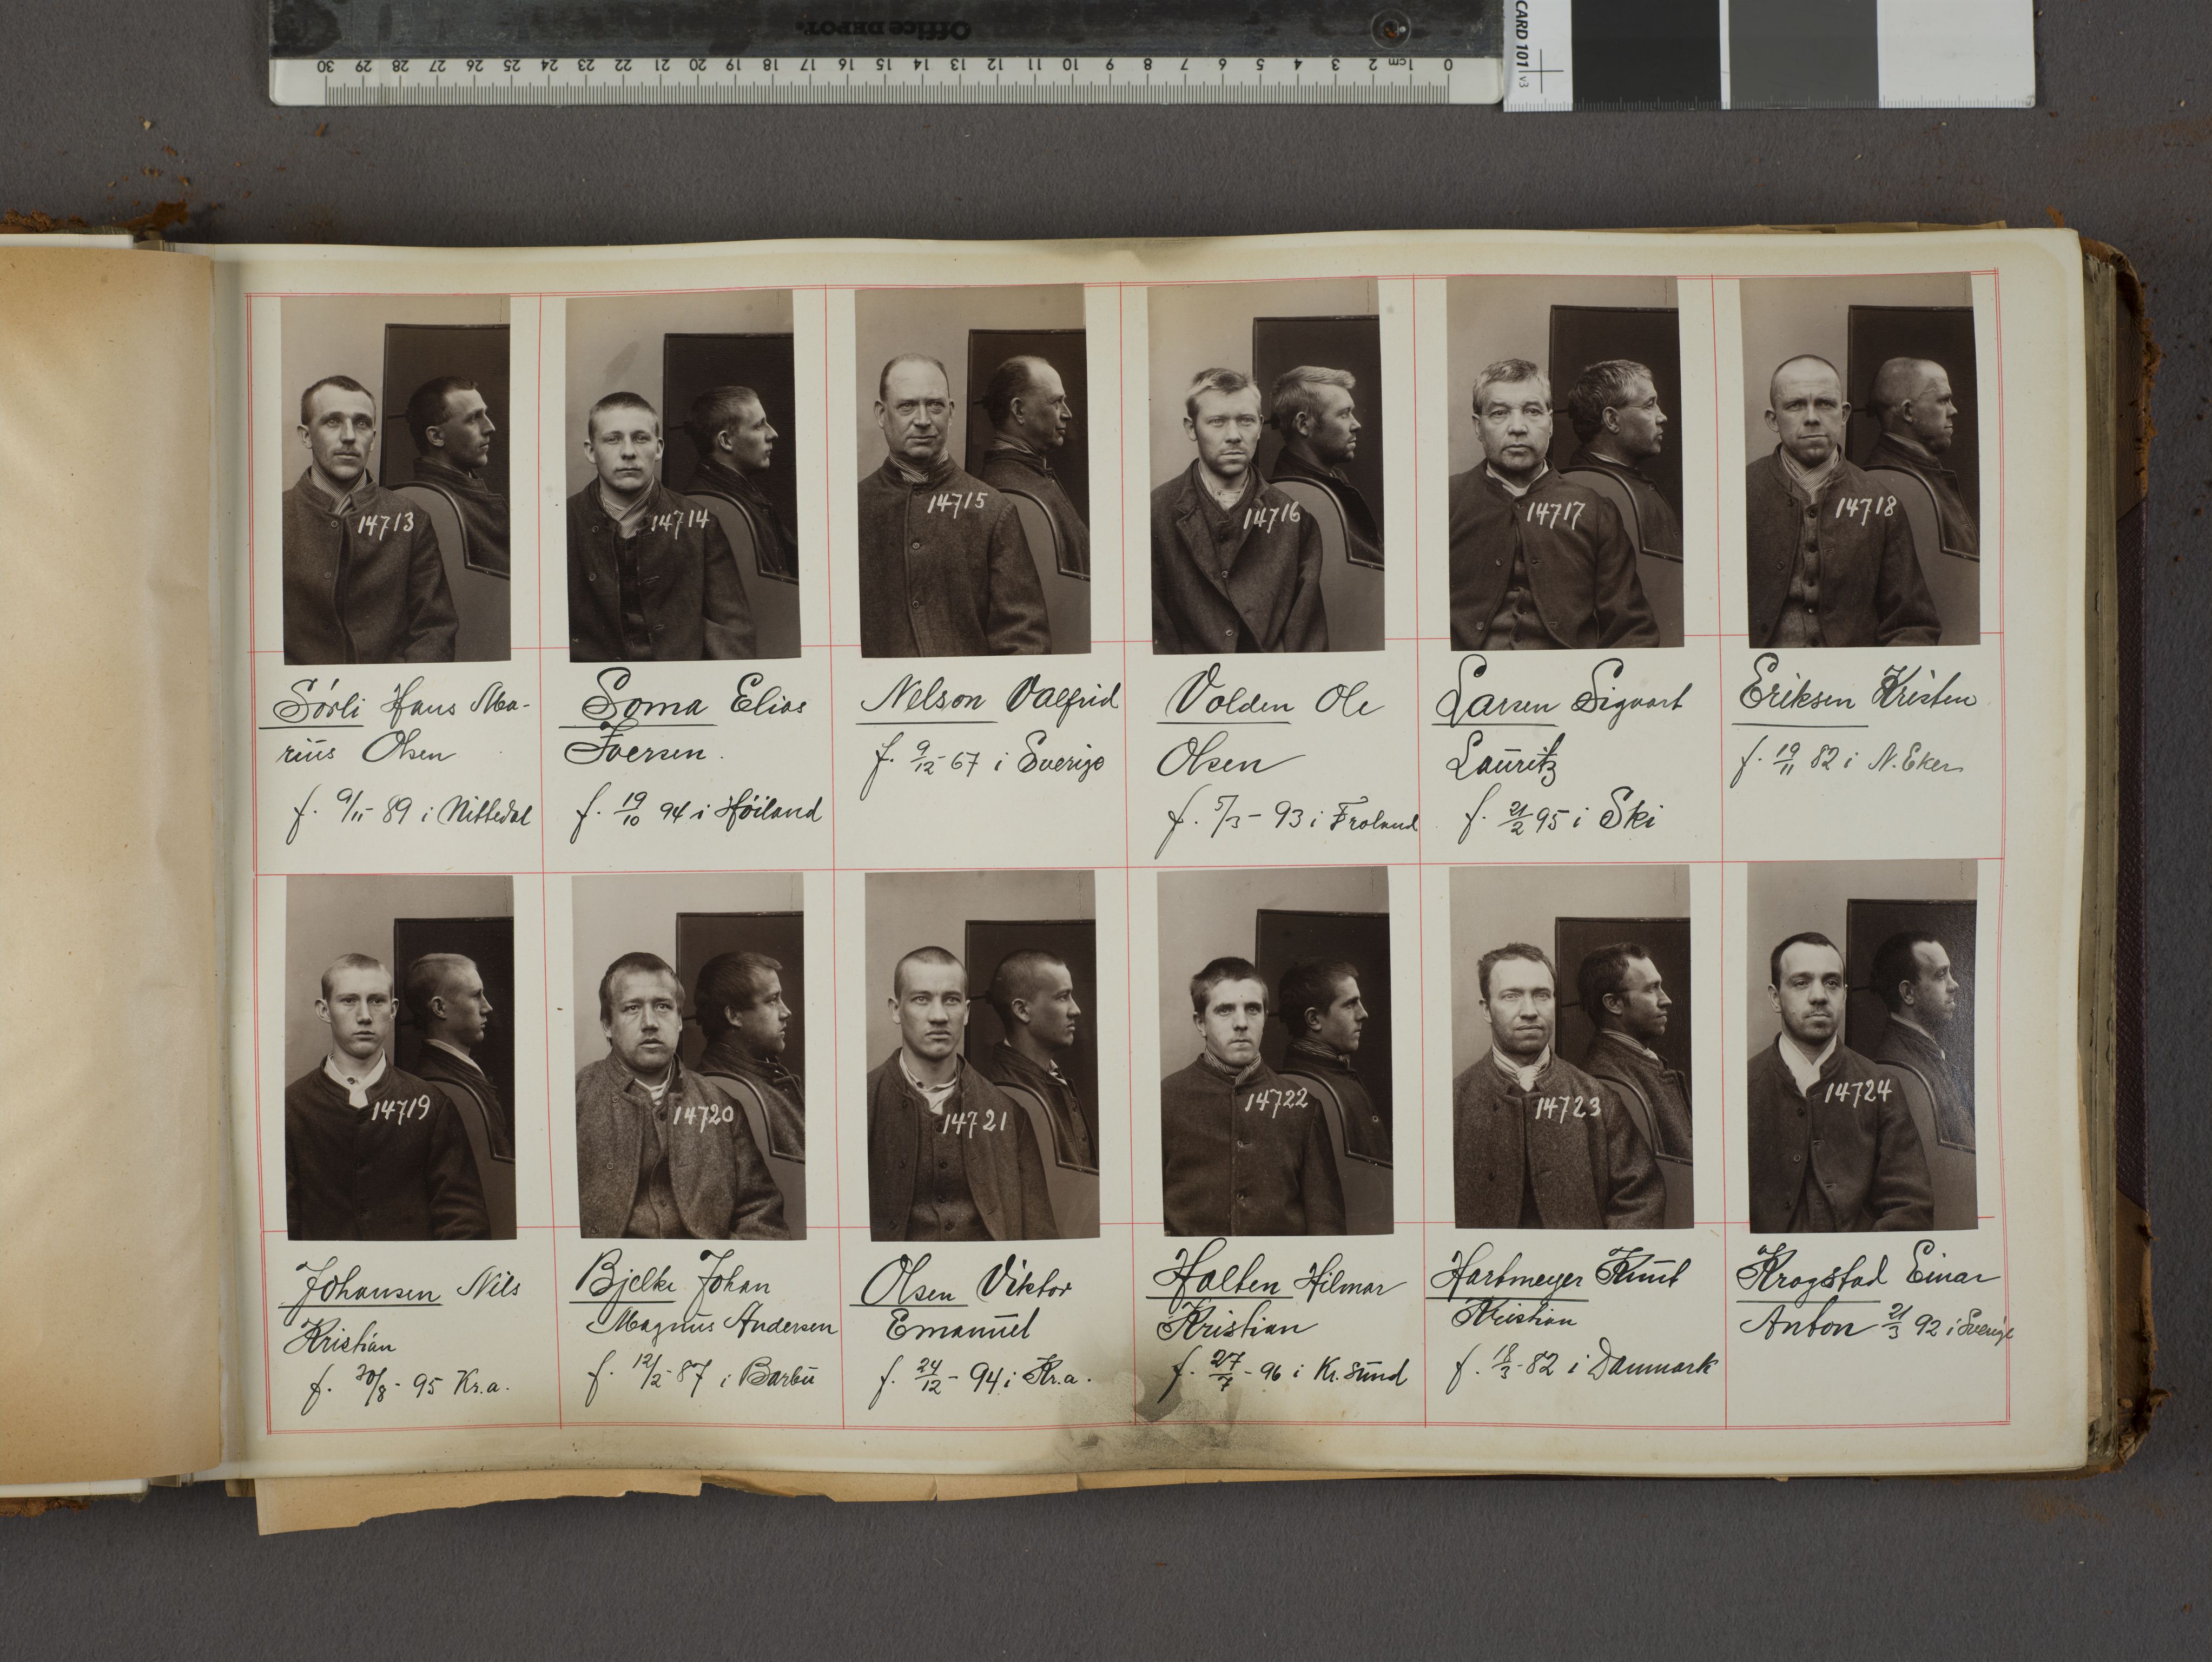 Office DEPOT.
0 1cm 2 3 4 5 6 7 8 9 10 11 12 13 14 15 16 17 18 19 20 21 22 23 24 25 26 27 28 29 30
CARD 101 v3
14713
14714
14715
14716
14717
14718
Sörli Hans Ma-
rius Olsen
f. 9/11 89 i Nittedal
Soma Elias
Iversen.
f. 19/10 94 i Höiland
Nelson Valfrid
f. 9/12 - 67 i Sverige
Volden Ole
Olsen
f. 5/3 - 93 i Froland
Larsen Sigvart
Lauritz
f. 21/2 95 i Ski
Eriksen Kristen
f. 19/11 82 i N. Eker
14719
14720
14721
14722
14723
14724
Johansen Nils
Kristian
f. 30/8 - 95 Kr.a.
Bjelke Johan
Magnus Andersen
f. 12/2 - 87 i Barbu
Olsen Viktor
Emanuel
f. 24/12 - 94 i Kr.a.
Holten Hilmar
Kristian
f. 27/7 - 96 i Kr. sund
Hartmeyer Knut
Kristian
f. 18/3 - 82 i Danmark
Krogstad Einar
Anton 21/3 92 i Sverige